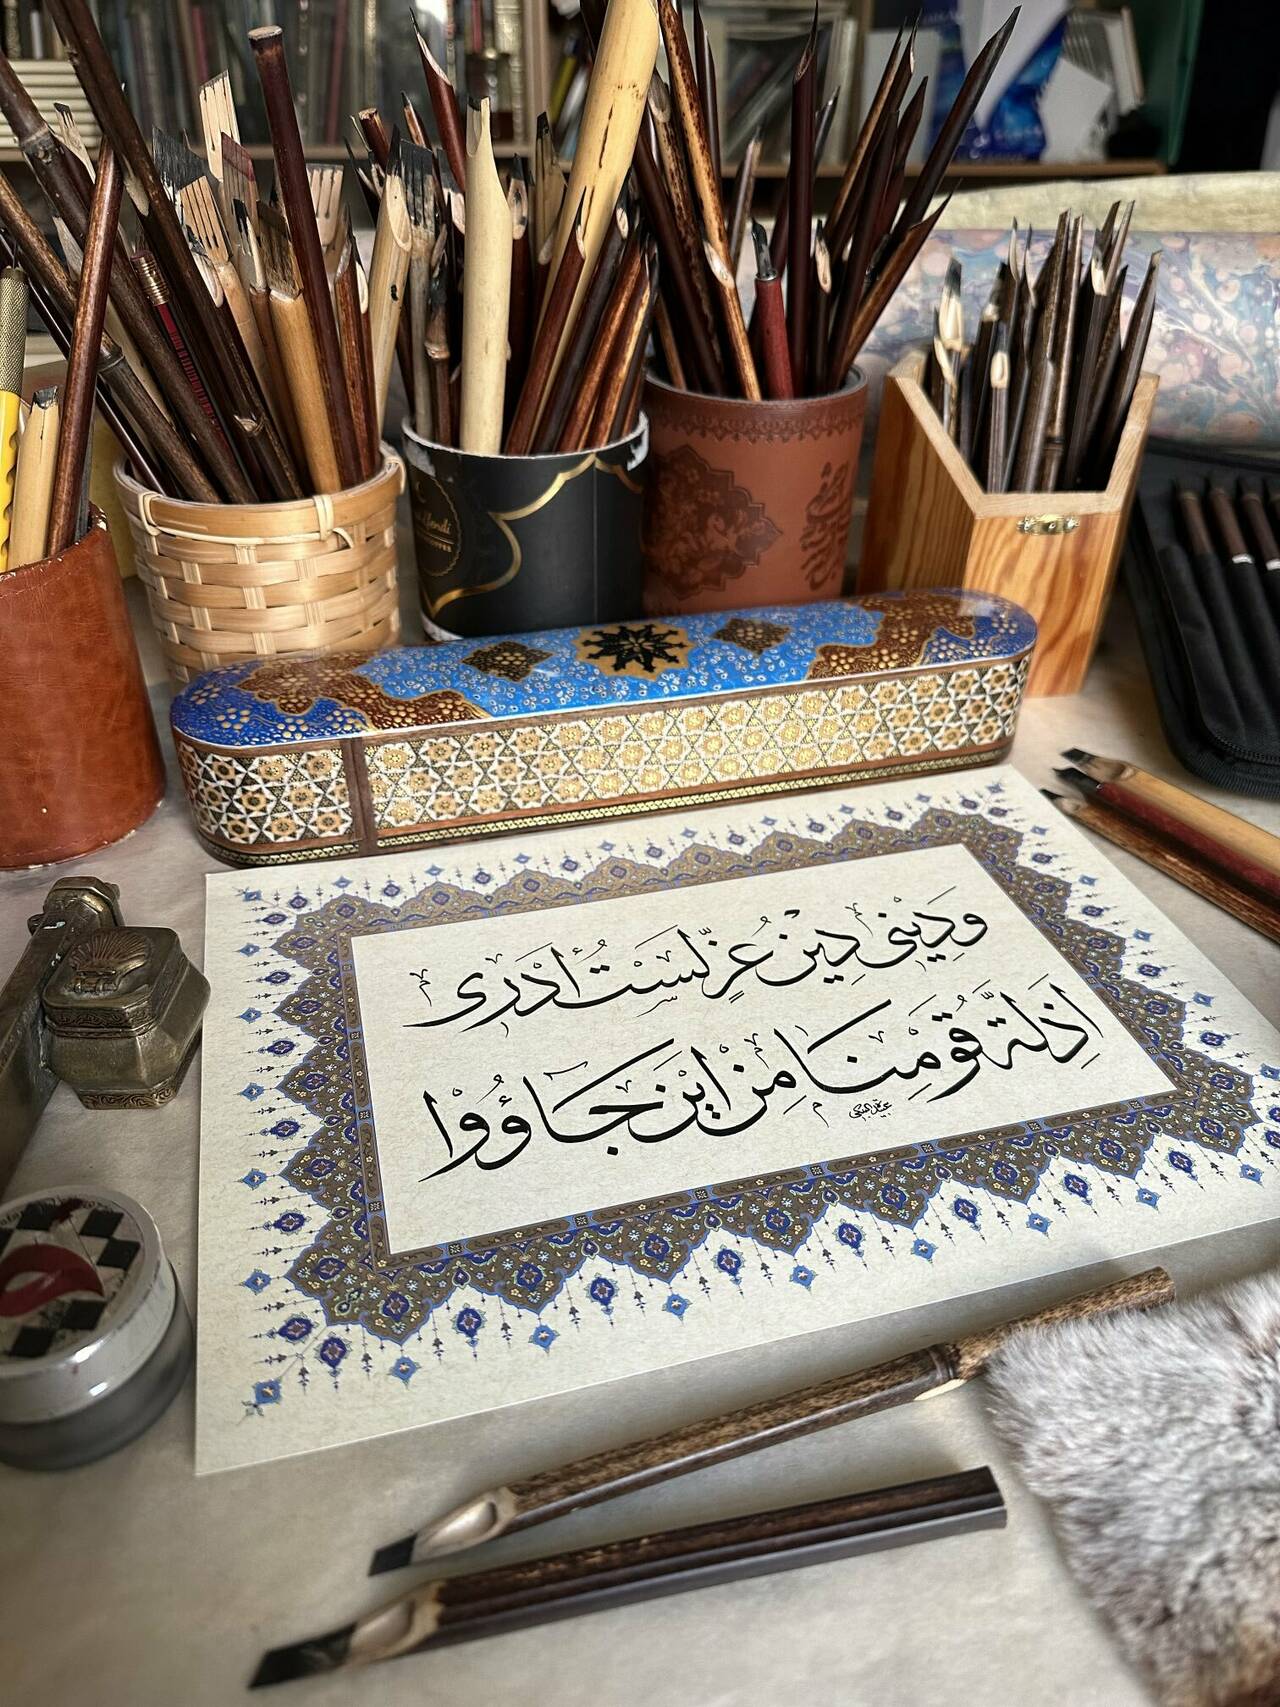 وَدِينِي دِينُ عِزٍّ لَسْتُ أَدْرِي
اَذِلَّةُ قَوْمِنَا مِنْ اَيْنَ جَاؤُوا